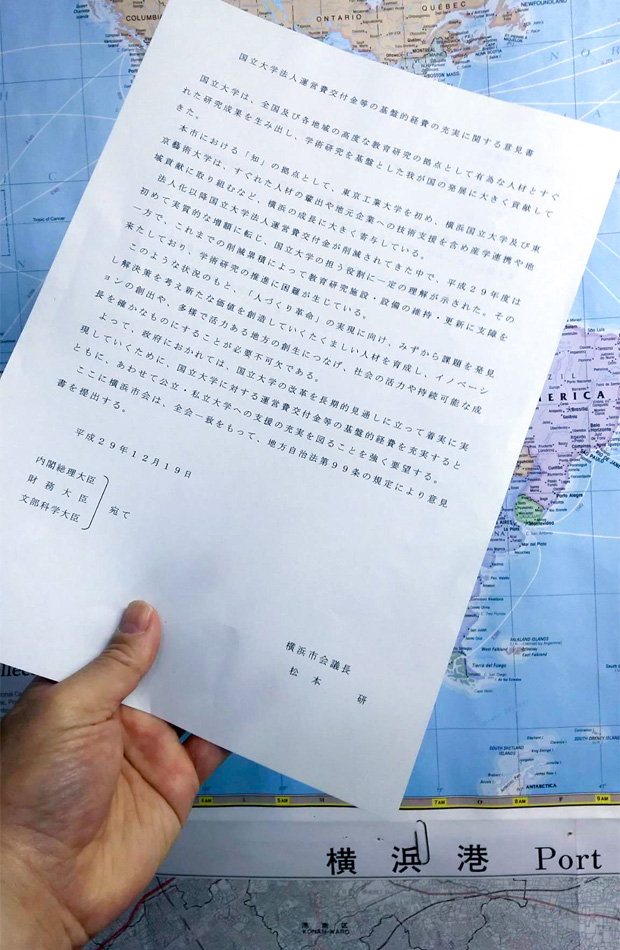 COLUMBIA
ONTARIO
QUÉBEC
NEWFOUNDLAND
MONTREAL
NOVA SCOTIA
BOSTON MASS.
Tropic of Cancer
国立大学法人運営費交付金等の基盤的経費の充実に関する意見書
国立大学は、全国及び各地域の高度な教育研究の拠点として有為な人材とすぐ
れた研究成果を生み出し、学術研究を基盤とした我が国の発展に大きく貢献して
きた。
本市における「知」の拠点として、東京工業大学を初め、横浜国立大学及び東
京藝術大学は、すぐれた人材の輩出や地元企業への技術支援を含め産学連携や地
域貢献に取り組むなど、横浜の成長に大きく寄与している。
法人化以降国立大学法人運営費交付金が削減されてきた中で、平成２９年度は
初めて実質的な増額に転じ、国立大学の担う役割に一定の理解が示された。その
一方で、これまでの削減累積によって教育研究施設・設備の維持・更新に支障を
来たしており、学術研究の推進に困難が生じている。
このような状況のもと、「人づくり革命」の実現に向け、みずから課題を発見
し解決策を考え新たな価値を創造していくたくましい人材を育成し、イノベーシ
ョンの創出や、多様で活力ある地方の創生につなげ、社会の活力や持続可能な成
長を確かなものにすることが必要不可欠である。
よって、政府におかれては、国立大学の改革を長期的見通しに立って着実に実
現していくために、国立大学に対する運営費交付金等の基盤的経費を充実すると
ともに、あわせて公立・私立大学への支援の充実を図ることを強く要望する。
ここに横浜市会は、全会一致をもって、地方自治法第９９条の規定により意見
書を提出する。
平成２９年１２月１９日
内閣総理大臣
財務大臣
文部科学大臣
宛て
横浜市会議長
松本　研
ERICA
Brasília
SÃO PAULO
Porto Alegre
Montevideo
Mar del Plata
FALKLAND ISLANDS
West Falkland
East Falkland
Tierra del Fuego
SOUTH SHETLAND ISLANDS
SOUTH ORKNEY ISLANDS
ANTARCTICA
4AM
5AM
7AM
8AM
9AM
横浜港 Port
港南区
KONAN-WARD